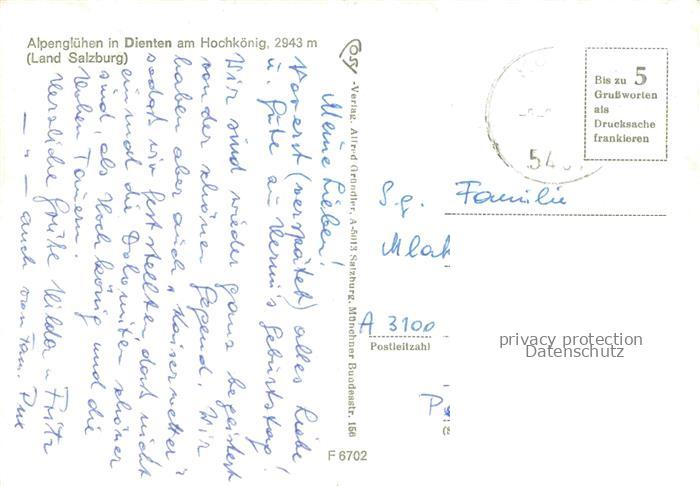 Alpenglühen in Dienten am Hochkönig, 2943 m
(Land Salzburg)
Meine Lieben!
Vorerst (verspätet) alles Liebe
u. Gute zu Hermis Geburtstag!
Wir sind wieder ganz begeistert
von der schönen Gegend. Wir
haben aber auch "Kaiserwetter"
sodaß wir feststellten daß nicht
einmal die Dolomiten schöner
sind, als Hochkönig und die
Hohen Tauern.
Herzliche Grüße Hilda u. Fritz
— " — auch von Fam.
Cosy -Verlag, Alfred Gründler, A-5013 Salzburg, Münchner Bundesstr. 156
F 6702
Bis zu 5
Grußworten
als
Drucksache
frankieren
54
S.g. Familie
Mlak
A 3100
Postleitzahl
P
privacy protection
Datenschutz